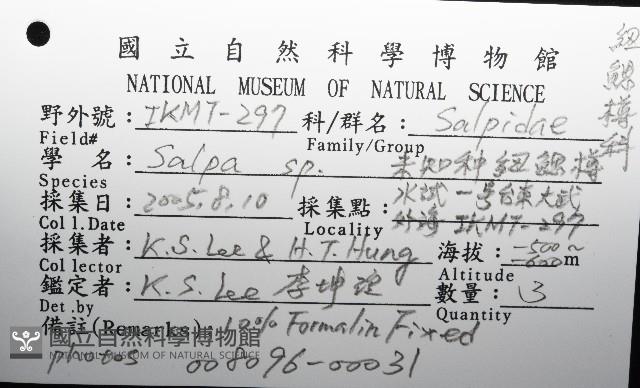 紐鰓樽科
國立自然科學博物館
NATIONAL MUSEUM OF NATURAL SCIENCE
野外號: IKMT-297 科/群名: Salpidae
Field# Family/Group
學 名: Salpa sp. 未知種紐鰓樽
Species
採集日: 2005.8.10 採集點: 水試一号台東大武
Coll.Date Locality 外海 IKMT-297
採集者: K.S. Lee & H.T. Hung 海拔: -500~-600m
Collector Altitude
鑑定者: K.S. Lee 李坤瑄 數量: 3
Det.by Quantity
備註(Remarks): 10% Formalin Fixed
photos 008096-00031
國立自然科學博物館
NATIONAL MUSEUM OF NATURAL SCIENCE